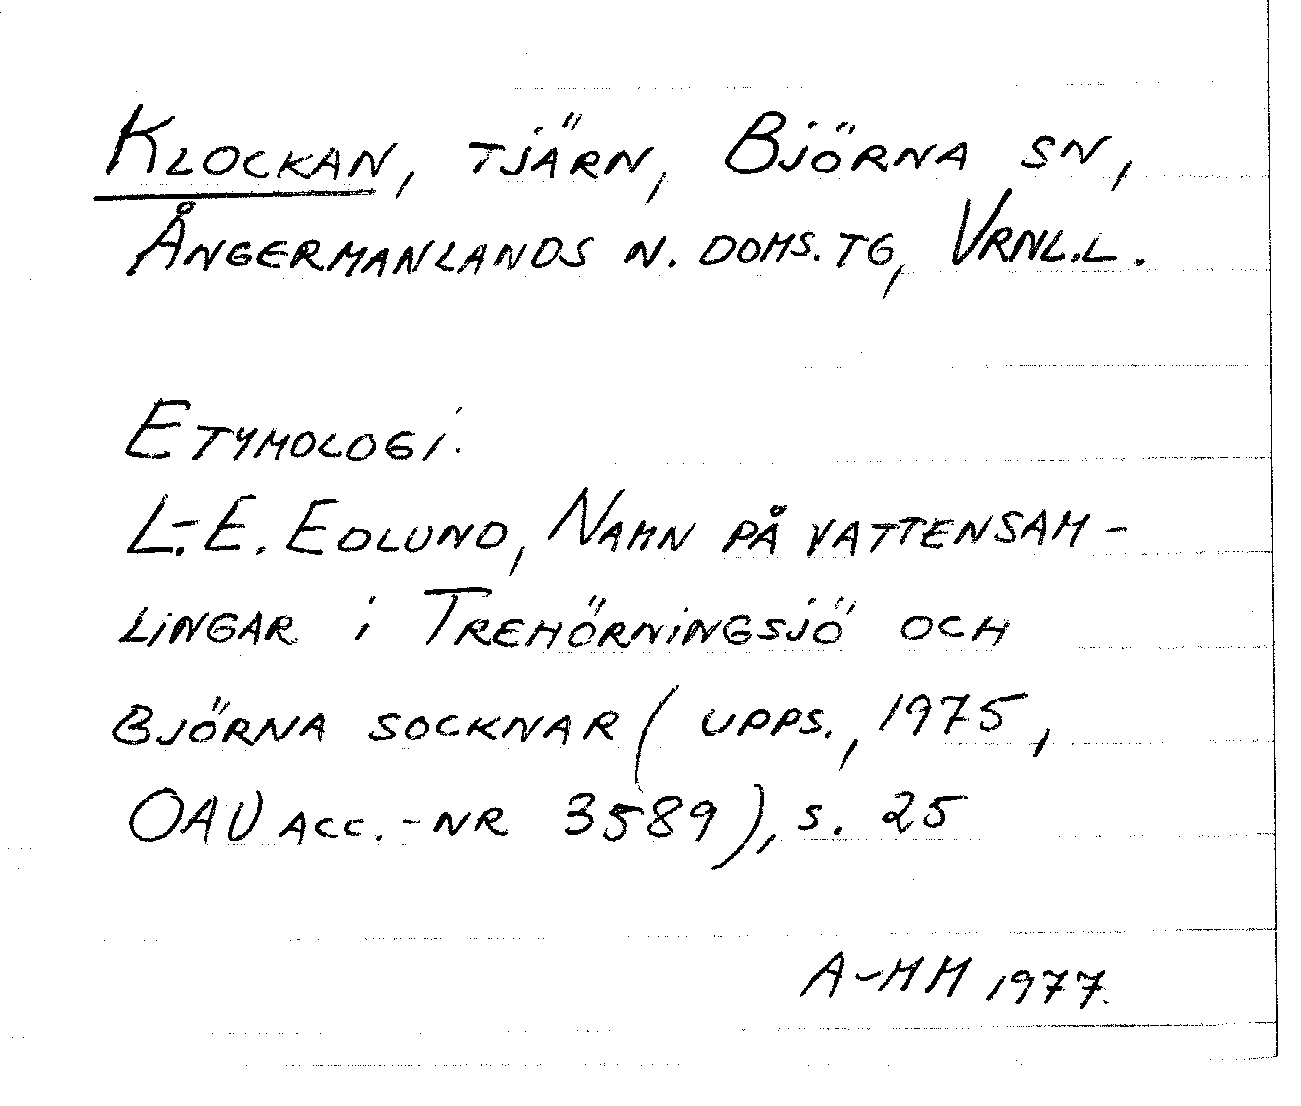 KLOCKAN, TJÄRN, BJÖRNA SN,
ÅNGERMANLANDS N. DOMS. TG, VRNL.L.
ETYMOLOGI.
L.-E. EDLUND, NAMN PÅ VATTENSAM-
LINGAR i TREHÖRNINGSJÖ OCH
BJÖRNA SOCKNAR (UPPS., 1975,
OAU ACC.-NR 3589), S. 25
A-MM 1977.